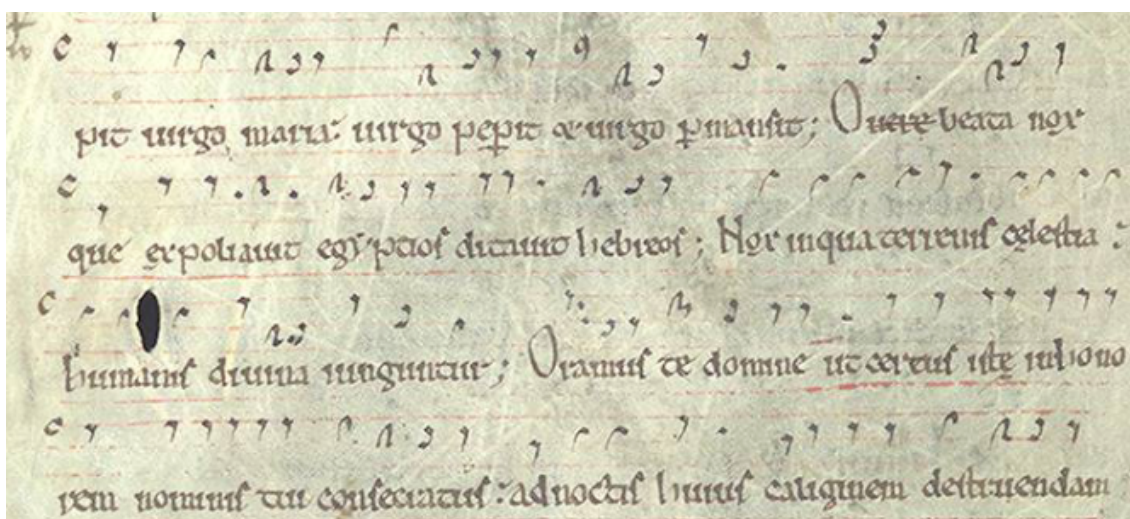 pit uirgo maria: uirgo peꝑit & uirgo ꝑmansit; O uere beata nox
que expoliauit egyptios ditauit hebreos; Nox in qua terrenis cęlestia:
humanis diuina iunguntur; Oramus te domine ut cereus iste in hono
rem nominis tui consecratus: ad noctis huius caliginem destruendam